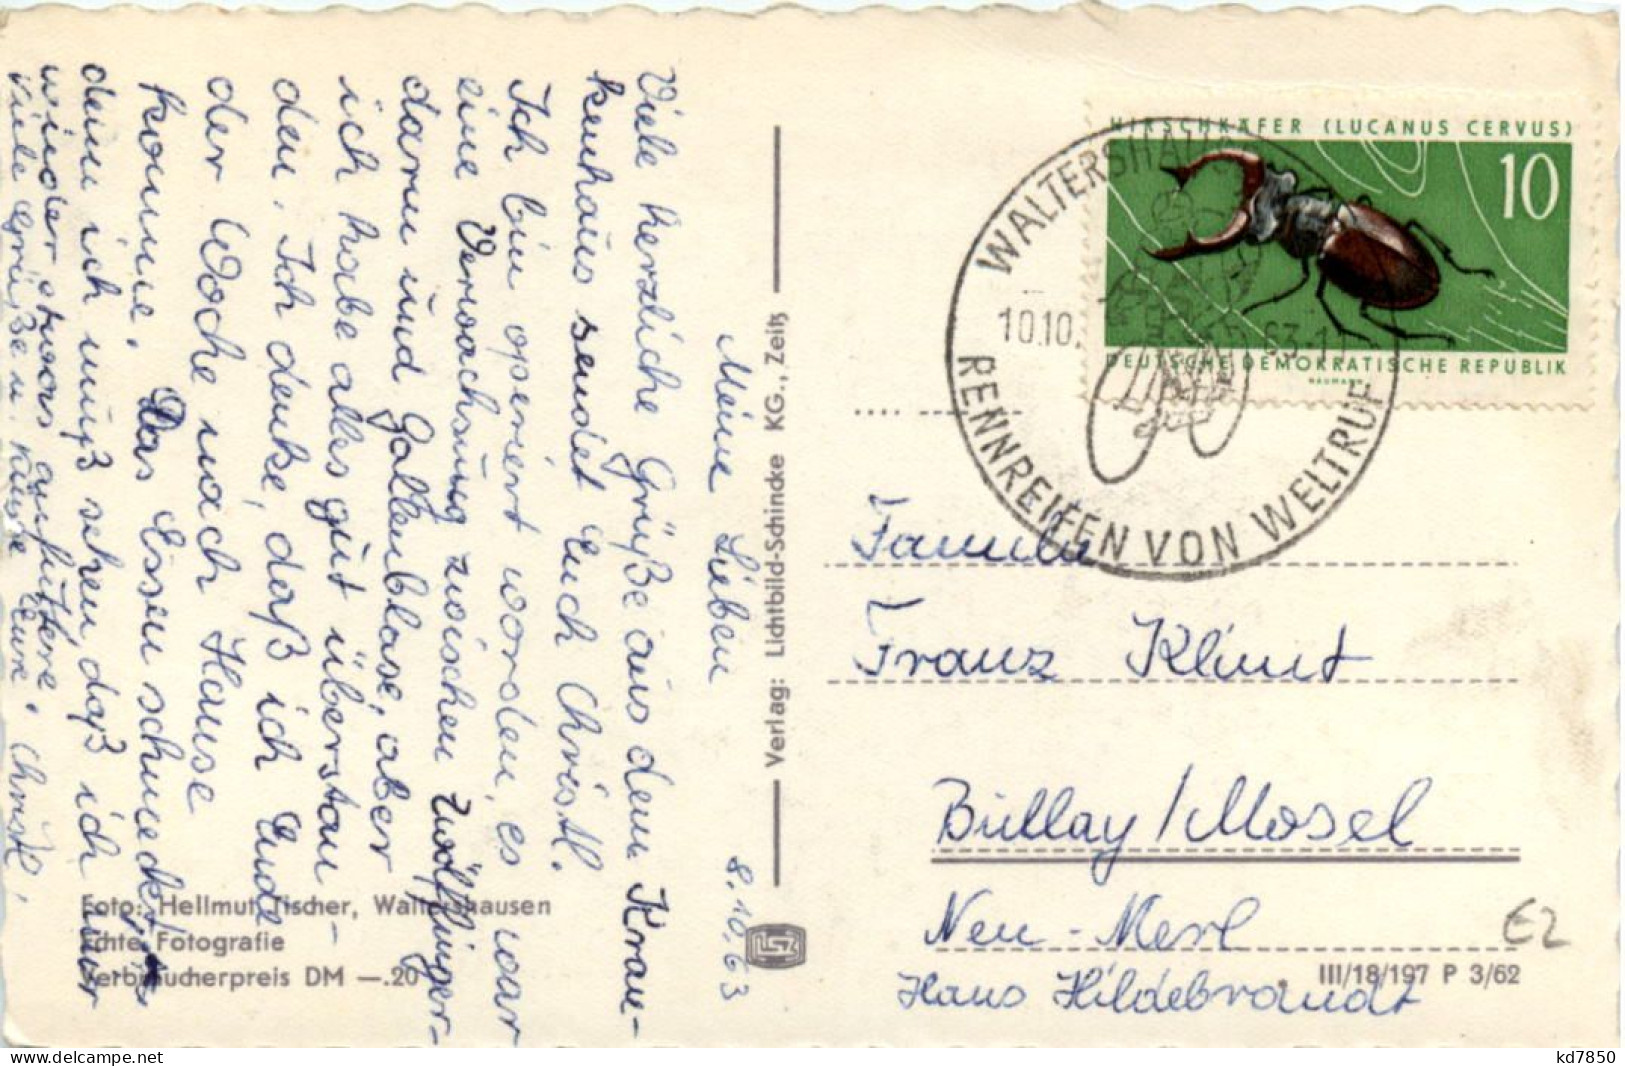 Meine Lieben
8.10.63
Viele herzliche Grüße aus dem Kran-
kenhaus sendet Euch Christl.
Ich bin operiert worden, es war
eine Verwachsung zwischen Zwölffinger-
darm und Gallenblase, aber
ich habe alles gut überstan-
den. Ich denke, daß ich Ende
der Woche nach Hause
komme. Das Essen schmeckt
denn ich muß sehen, daß ich
wieder etwas auffuttere.
Viele Grüße u. Küsse Eure Christl.
Foto: Hellmut Tischer, Waltershausen
Echte Fotografie
Verbraucherpreis DM —.20
Verlag: Lichtbild-Schincke KG., Zeitz
HIRSCHKÄFER (LUCANUS CERVUS)
10
DEUTSCHE DEMOKRATISCHE REPUBLIK
NAUMANN
WALTERSHAUSEN
10.10.63-11
RENNREIFEN VON WELTRUF
Familie
Franz Klimt
Bullay/Mosel
Neu-Merl
Haus Hildebrandt
III/18/197 P 3/62
E2
kd7850